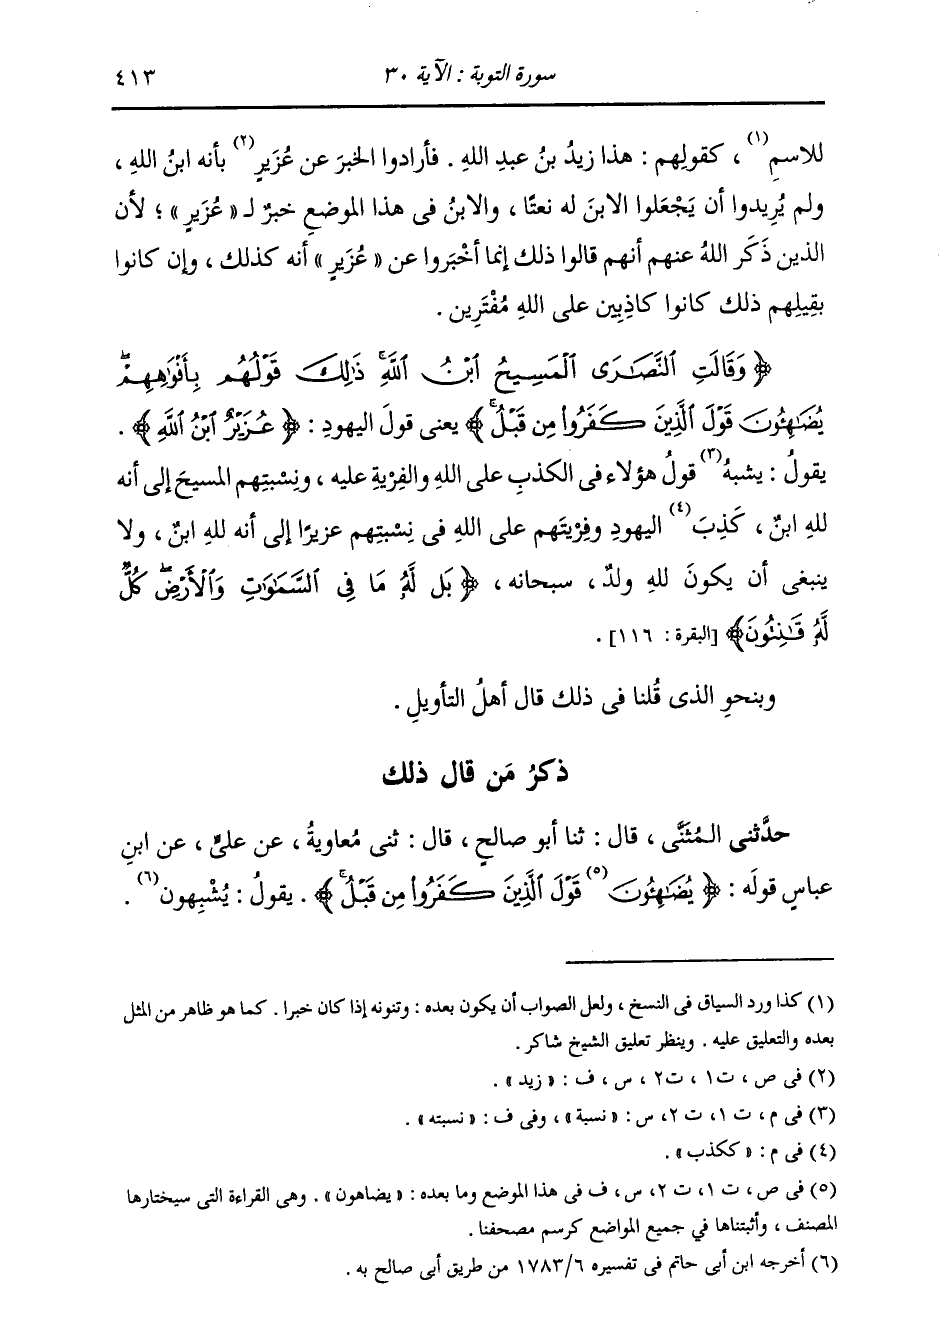 سورة التوبة : الآية ٣٠ ٤١٣
للاسمِ(١) ، كقولِهم : هذا زيدُ بنُ عبدِ اللهِ . فأرادوا الخبرَ عن عُزَيرٍ(٢) بأنه ابنُ اللهِ ،
ولم يُرِيدوا أن يَجْعَلوا الابنَ له نعتًا ، والابنُ فى هذا الموضعِ خبرٌ لـ « عُزَيرٍ » ؛ لأن
الذين ذَكَر اللهُ عنهم أنهم قالوا ذلك إنما أخْبَروا عن « عُزَيرٍ » أنه كذلك ، وإن كانوا
بقِيلِهم ذلك كانوا كاذِبِين على اللهِ مُفْتَرِين .
﴿ وَقَالَتِ ٱلنَّصَٰرَى ٱلْمَسِيحُ ٱبْنُ ٱللَّهِۖ ذَٰلِكَ قَوْلُهُم بِأَفْوَٰهِهِمْۖ
يُضَٰهِـُٔونَ قَوْلَ ٱلَّذِينَ كَفَرُوا۟ مِن قَبْلُۚ ﴾ يعنى قولَ اليهودِ : ﴿ عُزَيْرٌ ٱبْنُ ٱللَّهِ ﴾ .
يقولُ : يشبهُ(٣) قولُ هؤلاء فى الكذبِ على اللهِ والفِرْيةِ عليه ، ونِسْبتِهم المسيحَ إلى أنه
للهِ ابنٌ ، كَذِبَ(٤) اليهودِ وفِرْيتَهم على اللهِ فى نِسْبتِهم عزيرًا إلى أنه للهِ ابنٌ ، ولا
ينبغى أن يكونَ للهِ ولدٌ ، سبحانه ، ﴿ بَل لَّهُۥ مَا فِى ٱلسَّمَٰوَٰتِ وَٱلْأَرْضِۖ كُلٌّ
لَّهُۥ قَٰنِتُونَ ﴾ [البقرة : ١١٦] .
وبنحوِ الذى قُلنا فى ذلك قال أهلُ التأويلِ .
ذكرُ مَن قال ذلك
حدَّثنى المُثَنَّى ، قال : ثنا أبو صالحٍ ، قال : ثنى مُعاويةُ ، عن علىٍّ ، عن ابنِ
عباسٍ قولَه : ﴿ يُضَٰهِـُٔونَ(٥) قَوْلَ ٱلَّذِينَ كَفَرُوا۟ مِن قَبْلُۚ ﴾ . يقولُ : يُشْبِهون(٦) .
(١) كذا ورد السياق فى النسخ ، ولعل الصواب أن يكون بعده : وتنونه إذا كان خبرا . كما هو ظاهر من المثل
بعده والتعليق عليه . وينظر تعليق الشيخ شاكر .
(٢) فى ص ، ت١ ، ت٢ ، س ، ف : « زيد » .
(٣) فى م ، ت ١، ت ٢، س : « نسبة » ، وفى ف : « نسبته » .
(٤) فى م : « ككذب » .
(٥) فى ص ، ت ١، ت ٢، س ، ف فى هذا الموضع وما بعده : « يضاهون » . وهى القراءة التى سيختارها
المصنف ، وأثبتناها في جميع المواضع كرسم مصحفنا .
(٦) أخرجه ابن أبى حاتم فى تفسيره ١٧٨٣/٦ من طريق أبى صالح به .